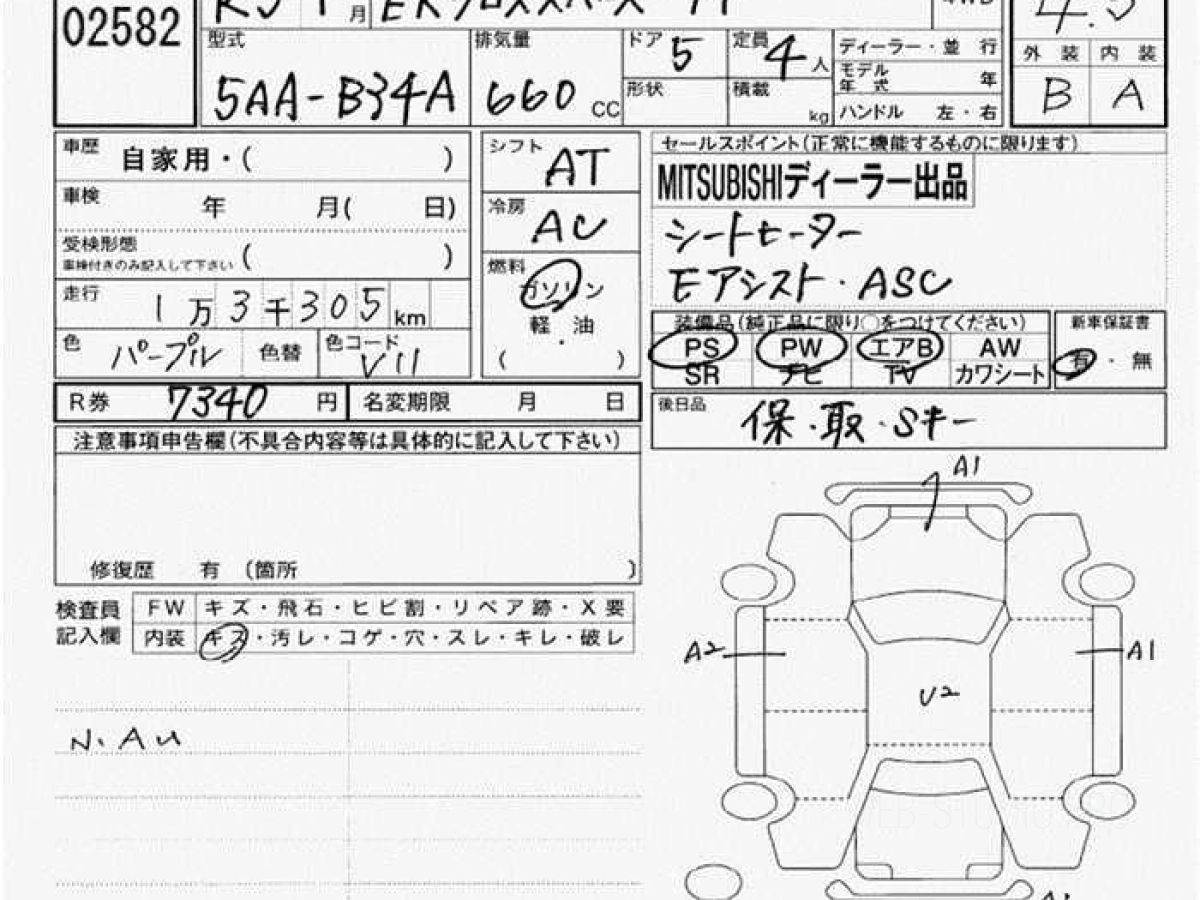 02582
月
4.5
型式 5AA-B34A
排気量 660 CC
ドア 5
定員 4 人
形状
積載 kg
ディーラー・並 行
モデル年式 年
ハンドル 左・右
外 装 内 装
B A
車歴 自家用・( )
車検 年 月( 日)
受検形態 ( )
車検付きのみ記入して下さい
走行 1万3千305km
色 パープル 色替 色コード V11
シフト AT
冷房 AC
燃料 ガソリン
軽 油
( )
セールスポイント(正常に機能するものに限ります)
MITSUBISHIディーラー出品
シートヒーター
Eアシスト・ASC
装備品(純正品に限り○をつけてください)
PS PW エアB AW
SR ナビ TV カワシート
新車保証書
有・無
R券 7340 円 名変期限 月 日
後日品 保・取・Sキー
注意事項申告欄(不具合内容等は具体的に記入して下さい)
修復歴 有 (箇所 )
検査員記入欄
FW キズ・飛石・ヒビ割・リペア跡・X要
内装 キズ・汚レ・コゲ・穴・スレ・キレ・破レ
N.AU
A1
A2
A1
U2